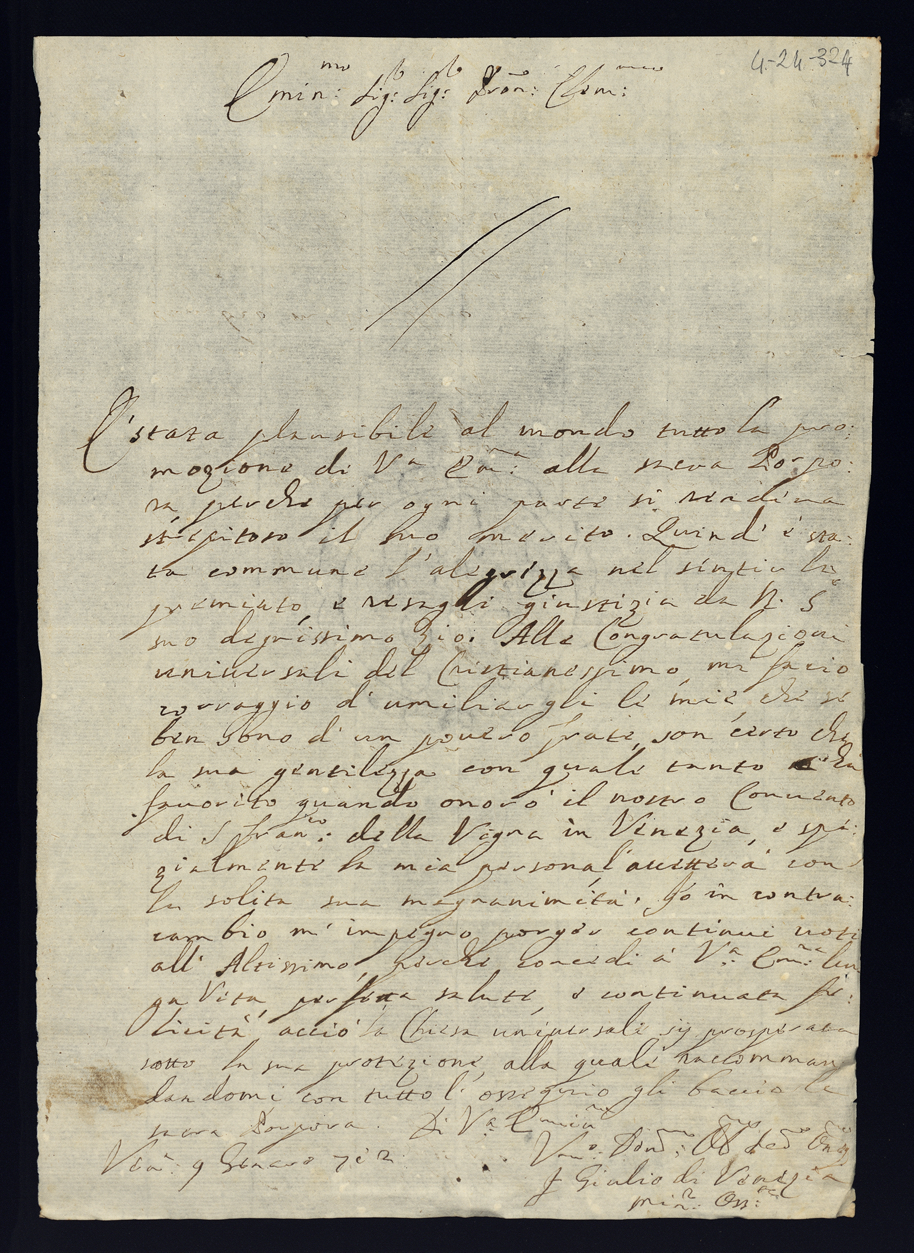 4-24-324
Emin:mo Sig:r Sig:r Pron: Clem:
E' stata plausibile al mondo tutto la pro:
mozione di V.a Em:a alla sacra Porpo:
ra perche per ogni parte si rendeva
strepitoso il suo merito. Quindi è sta:
ta commune l'alegrezza nel sentirlo
premiato, e resagli giustizia da N. S.
suo degnissimo Zio. Alle Congratulazioni
universali del Cristianessimo, mi facio
corraggio d'umiliargli le mie, che se
ben sono d'un povero frate, son certo che
la sua gentilezza con quale tanto
favorito quando onorò il nostro Convento
di S Fran:co della Vigna in Venezia, e spe:
zialmente la mia persona l'accetterà con
la solita sua magnanimità. Io in contra:
cambio m'impegno porger continui voti
all'Altissimo, perche concedi à V:a Em:a lun
ga Vita, perfetta salute, e continuata fe:
licità, acciò la Chiesa universale sij prosperata
sotto la sua protezione, alla quale raccomman
dandomi con tutto l'ossequio gli baccio la
sacra Porpora. Di V:a Emin:a
Ven:a 9 Genaro 712
F Giulio di Venezia
Min:r Oss:te